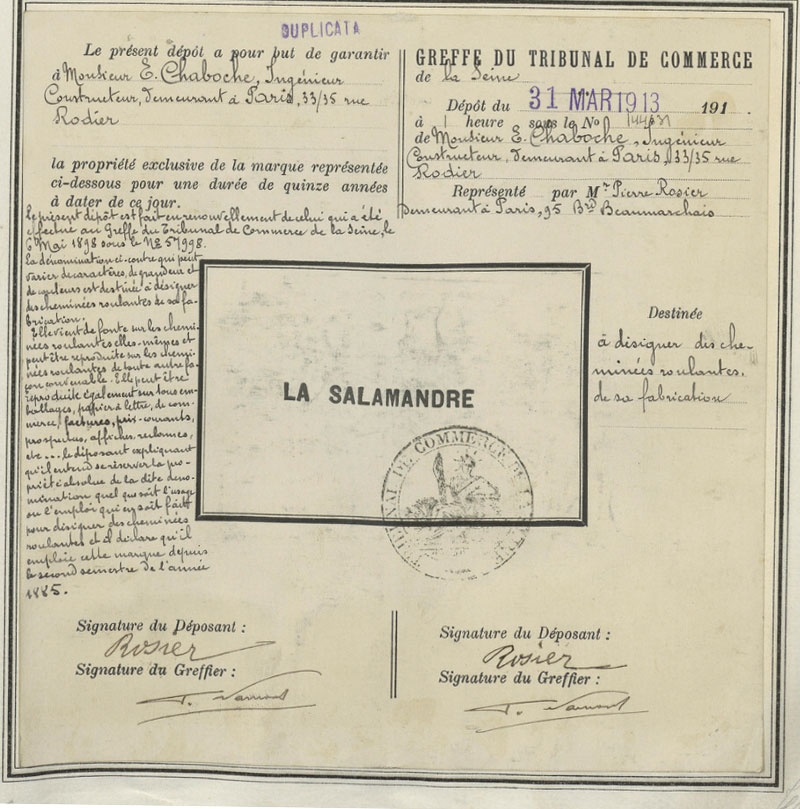 DUPLICATA
Le présent dépôt a pour but de garantir
à Monsieur E. Chaboche, Ingénieur
Constructeur, demeurant à Paris, 33/35 rue
Rodier
la propriété exclusive de la marque représentée
ci-dessous pour une durée de quinze années
à dater de ce jour.
Le présent dépôt est fait en renouvellement de celui qui a été
effectué au Greffe du Tribunal de Commerce de la Seine, le
6 Mai 1898 sous le No 57998.
La dénomination ci-contre qui peut
varier de caractères, de grandeur et
de couleurs est destinée à désigner
des cheminées roulantes de sa fa-
brication.
Elle vient de fonte sur les chemi-
nées roulantes elles-mêmes et
peut être reproduite sur les chemi-
nées roulantes de toute autre fa-
çon convenable. Elle peut être
reproduite également sur tous em-
ballages, papier à lettre, de com-
merce, factures, prix-courants,
prospectus, affiches, réclames,
etc... le déposant expliquant
qu'il entend se réserver la pro-
priété absolue de la dite déno-
mination quel que soit l'usage
ou l'emploi qui en soit fait
pour désigner des cheminées
roulantes et il déclare qu'il
emploie cette marque depuis
le second semestre de l'année
1885.
GREFFE DU TRIBUNAL DE COMMERCE
de la Seine
Dépôt du 31 MAR 1913 191
à 1 heure sous le No
de Monsieur E. Chaboche, Ingénieur
Constructeur, demeurant à Paris, 33/35 rue
Rodier
Représenté par Mr Pierre Rosier
demeurant à Paris, 95 Bd Beaumarchais
LA SALAMANDRE
TRIBUNAL DE COMMERCE DE LA SEINE
Destinée
à désigner des che-
minées roulantes.
de sa fabrication
Signature du Déposant :
Rosier
Signature du Greffier :
Signature du Déposant :
Rosier
Signature du Greffier :